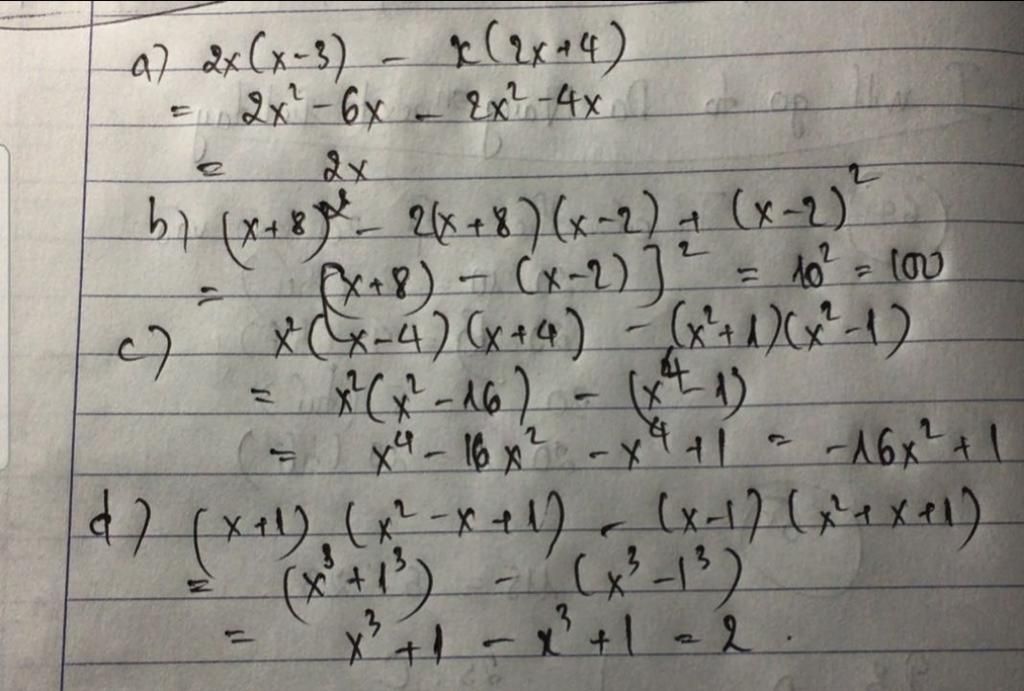 a) 2x(x-3) - x(2x+4)
= 2x² - 6x - 2x² - 4x
= 2x
b) (x+8)² - 2(x+8)(x-2) + (x-2)²
= [x+8) - (x-2)]² = 10² = 100
c) x²(x-4)(x+4) - (x²+1)(x²-1)
= x²(x²-16) - (x⁴-1)
= x⁴ - 16x² - x⁴ + 1 = -16x² + 1
d) (x+1)(x²-x+1) - (x-1)(x²+x+1)
= (x³+1³) - (x³-1³)
= x³ + 1 - x³ + 1 = 2.